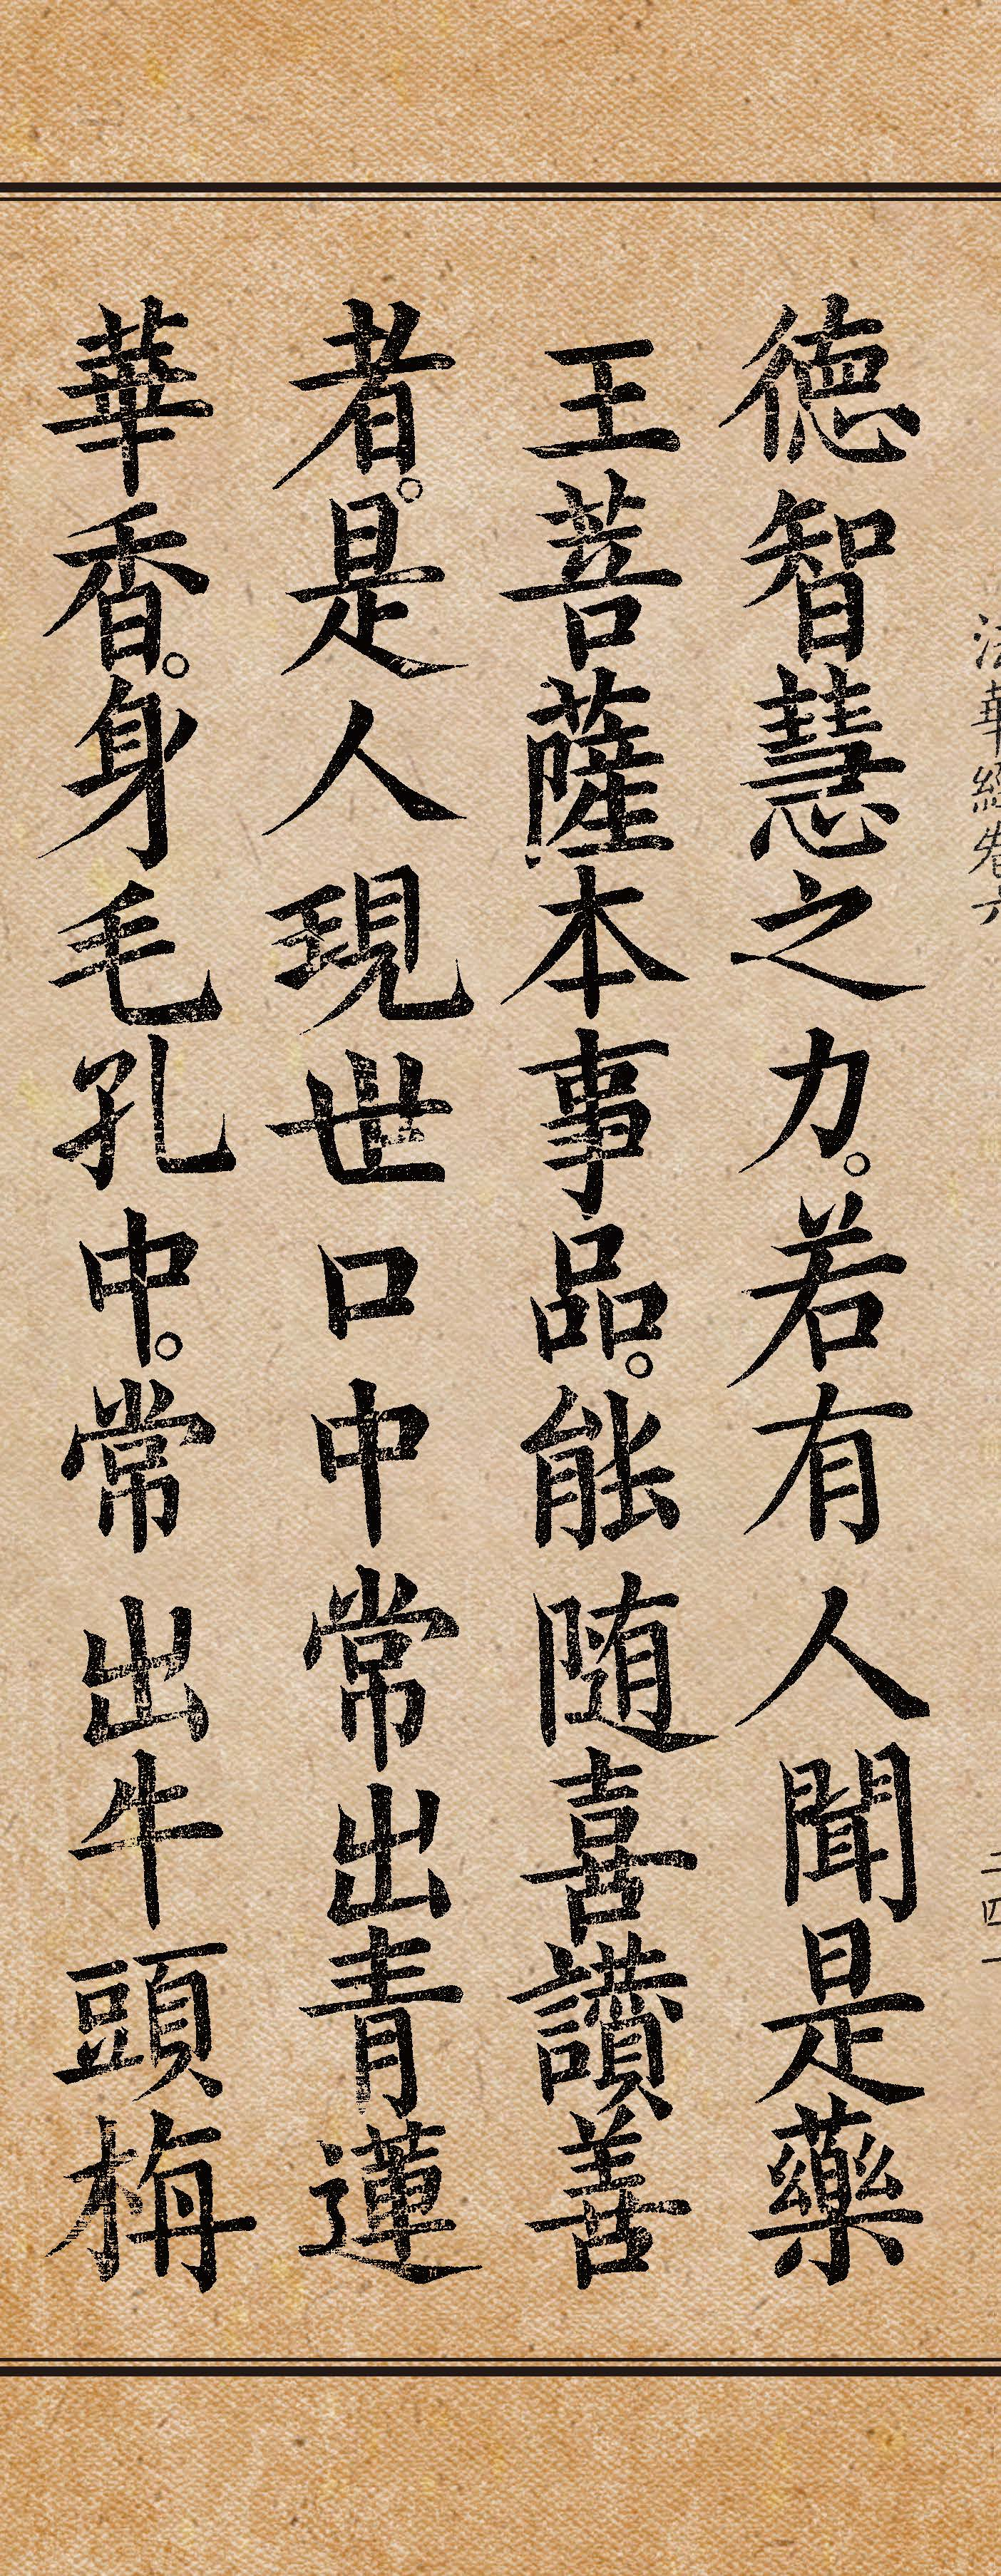 法華經卷六
徳智慧之力。若有人聞是藥
王菩薩本事品。能随喜讚善
者。是人現世口中常出青蓮
華香。身毛孔中。常出牛頭栴